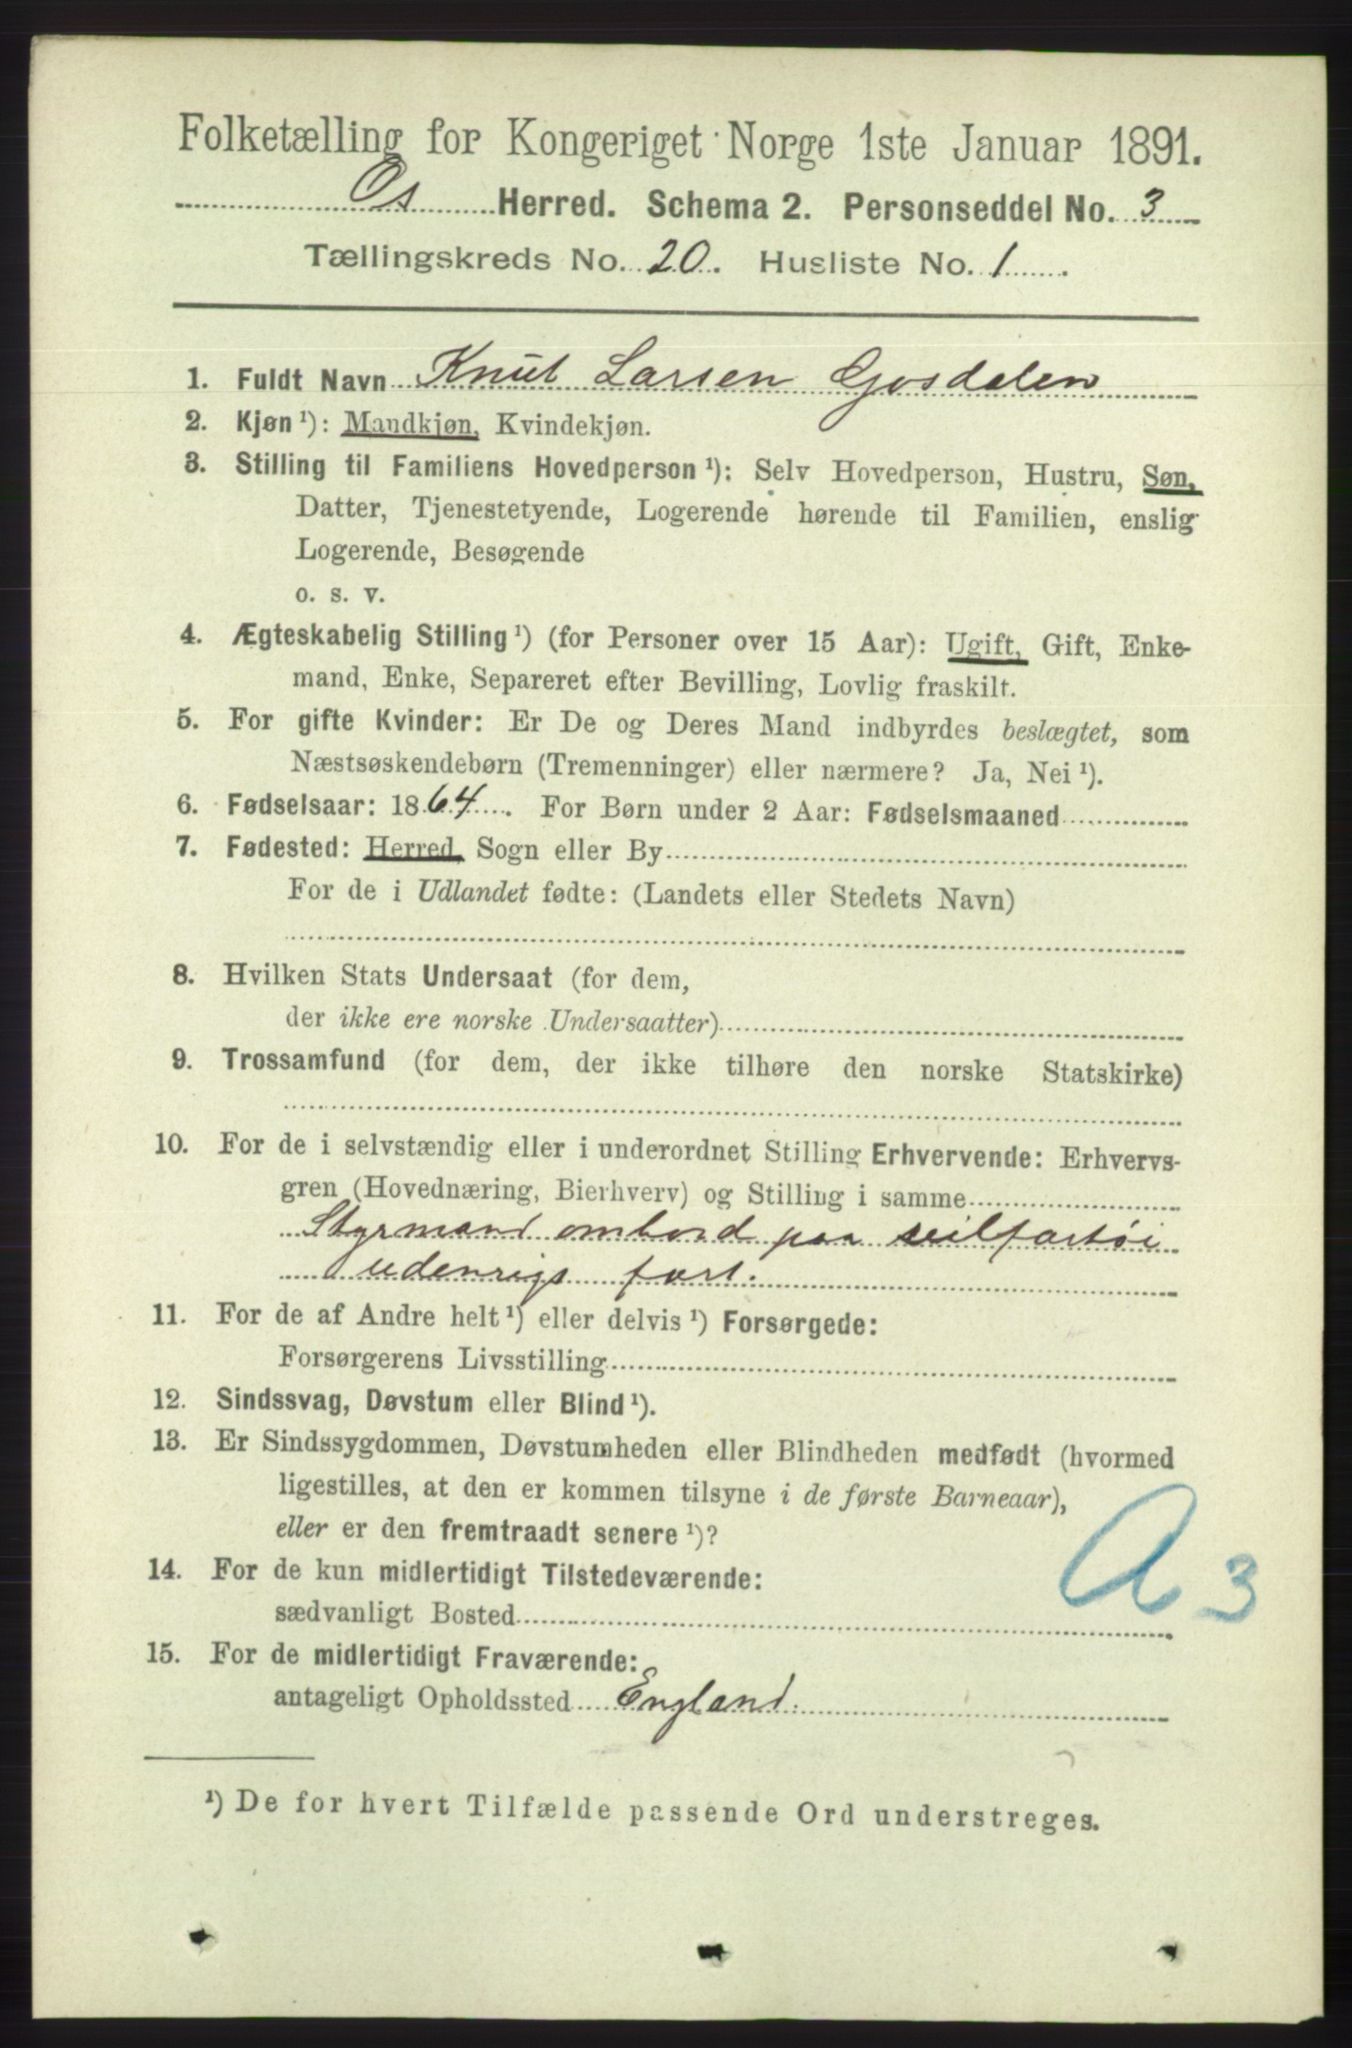 Folketælling for Kongeriget Norge 1ste Januar 1891.
Os Herred. Schema 2. Personseddel No. 3
Tællingskreds No. 20. Husliste No. 1.
1. Fuldt Navn Knut Larsen Gjosdalen
2. Kjøn¹): Mandkjøn, Kvindekjøn.
3. Stilling til Familiens Hovedperson¹): Selv Hovedperson, Hustru, Søn,
Datter, Tjenestetyende, Logerende hørende til Familien, enslig
Logerende, Besøgende
o. s. v.
4. Ægteskabelig Stilling¹) (for Personer over 15 Aar): Ugift, Gift, Enke-
mand, Enke, Separeret efter Bevilling, Lovlig fraskilt.
5. For gifte Kvinder: Er De og Deres Mand indbyrdes beslægtet, som
Næstsøskendebørn (Tremenninger) eller nærmere? Ja, Nei¹).
6. Fødselsaar: 1864. For Børn under 2 Aar: Fødselsmaaned
7. Fødested: Herred, Sogn eller By
For de i Udlandet fødte: (Landets eller Stedets Navn)
8. Hvilken Stats Undersaat (for dem,
der ikke ere norske Undersaatter)
9. Trossamfund (for dem, der ikke tilhøre den norske Statskirke)
10. For de i selvstændig eller i underordnet Stilling Erhvervende: Erhvervs-
gren (Hovednæring, Bierhverv) og Stilling i samme
Styrmand ombord paa seilfartøi
udenrigs fart.
11. For de af Andre helt¹) eller delvis¹) Forsørgede:
Forsørgerens Livsstilling
12. Sindssvag, Døvstum eller Blind¹).
13. Er Sindssygdommen, Døvstumheden eller Blindheden medfødt (hvormed
ligestilles, at den er kommen tilsyne i de første Barneaar),
eller er den fremtraadt senere¹)?
14. For de kun midlertidigt Tilstedeværende:
sædvanligt Bosted
A 3
15. For de midlertidigt Fraværende:
antageligt Opholdssted England.
¹) De for hvert Tilfælde passende Ord understreges.